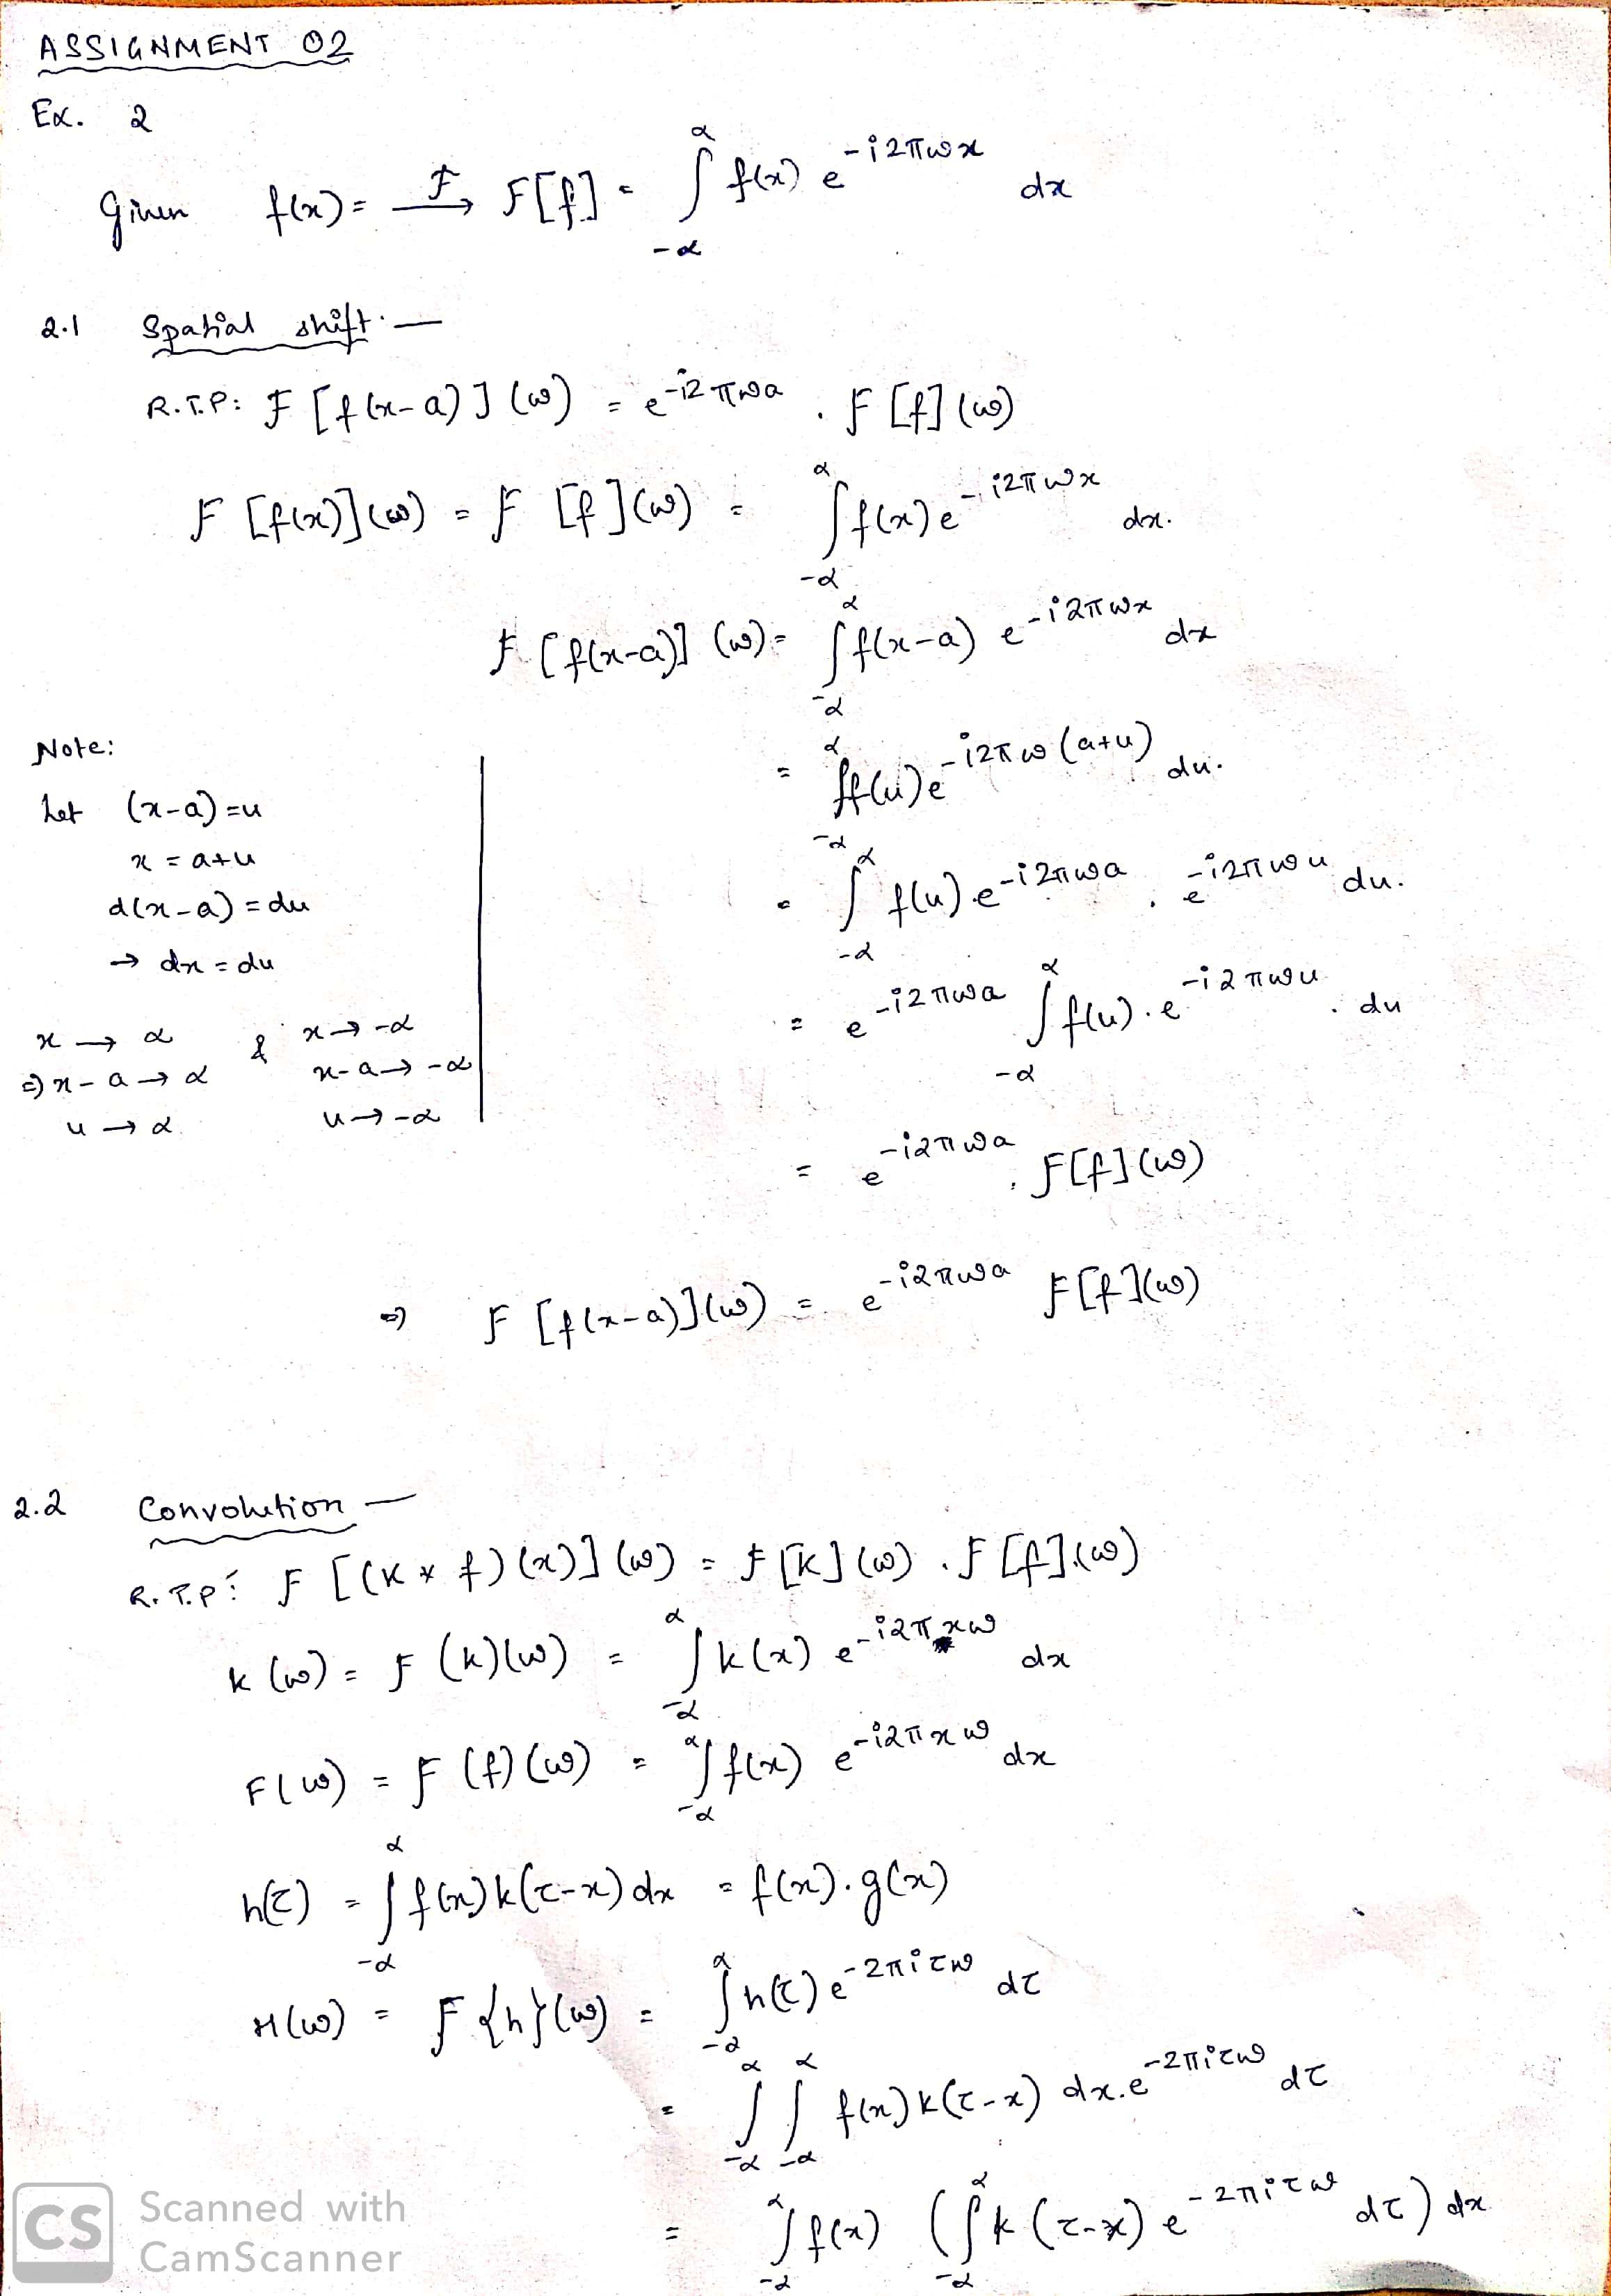 ASSIGNMENT 02
Ex. 2
Given f(x) = —F→ F[f] = ∫_{-α}^{α} f(x) e^{-i2πωx} dx
2.1 Spatial shift. —
R.T.P: F [f(x-a)] (ω) = e^{-i2πωa} . F [f] (ω)
F [f(x)] (ω) = F [f] (ω) = ∫_{-α}^{α} f(x) e^{-i2πωx} dx.
F [f(x-a)] (ω) = ∫_{-α}^{α} f(x-a) e^{-i2πωx} dx
= ∫_{-α}^{α} f(u) e^{-i2πω(a+u)} du.
= ∫_{-α}^{α} f(u) . e^{-i2πωa} . e^{-i2πωu} du.
= e^{-i2πωa} ∫_{-α}^{α} f(u) . e^{-i2πωu} . du
= e^{-i2πωa} . F[f] (ω)
Note:
Let (x-a) = u
x = a+u
d(x-a) = du
→ dx = du
x → α & x → -α
⇒ x-a → α x-a → -α
u → α u → -α
⇒ F [f(x-a)] (ω) = e^{-i2πωa} F[f] (ω)
2.2 Convolution —
R.T.P: F [(K * f) (x)] (ω) = F [K] (ω) . F [f] (ω)
K (ω) = F (k) (ω) = ∫_{-α}^{α} k(x) e^{-i2πxω} dx
F(ω) = F (f) (ω) = ∫_{-α}^{α} f(x) e^{-i2πxω} dx
h(τ) = ∫_{-α}^{α} f(x) k(τ-x) dx = f(x) . g(x)
H(ω) = F {h} (ω) = ∫_{-α}^{α} h(τ) e^{-2πiτω} dτ
= ∫_{-α}^{α} ∫_{-α}^{α} f(x) k(τ-x) dx . e^{-2πiτω} dτ
= ∫_{-α}^{α} f(x) (∫_{-α}^{α} k (τ-x) e^{-2πiτω} dτ) dx
CS Scanned with
CamScanner